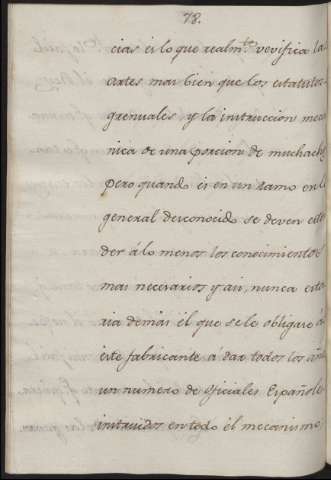 78.
cias es lo que realm.te verifica la
artes mas bien que los estatutos
gremiales, y la instruccion meca
nica de una porcion de muchachos
pero quando es en un ramo en lo
general desconocido se deven esten
der á lo menos los conocimientos
mas necesarios y asi, nunca esta
ria demas él que se le obligare á
este fabricante á dar todos los años
un numero de oficiales Españoles
instruidos en todo él mecanismo